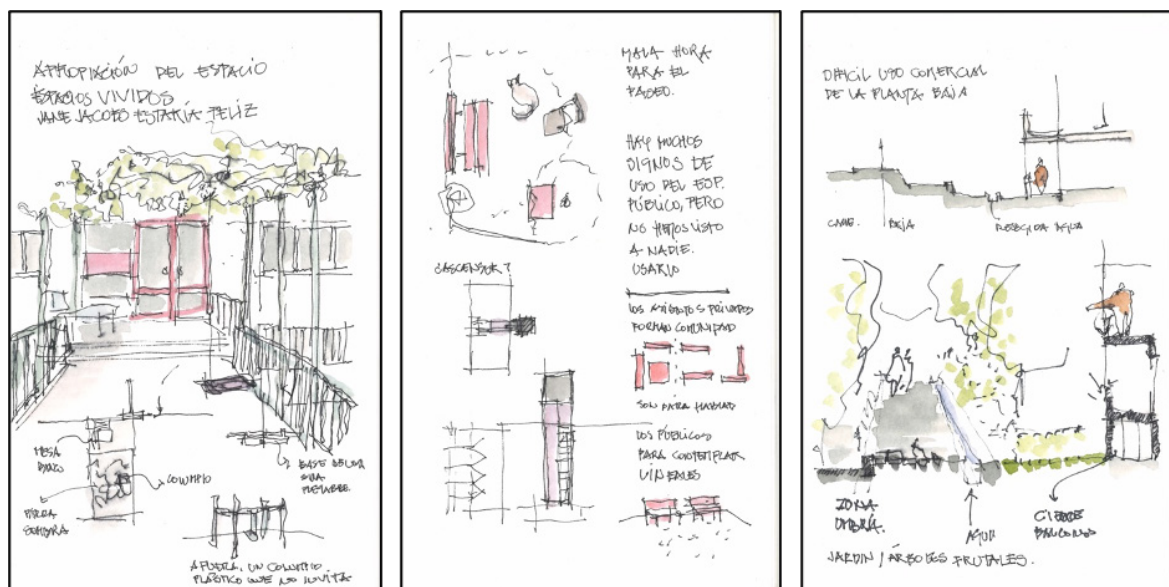 APROPIACIÓN DEL ESPACIO
ESPACIOS VIVIDOS
JANE JACOBS ESTARÍA FELIZ
MESA
BANCO
COLUMPIO
PARRA
SOMBRA
BASE DE UNA
SILLA
PLEGABLE.
AFUERA, UN COLUMPIO
PLÁSTICO QUE NO INVITA
MALA HORA
PARA EL
PASEO.
HAY MUCHOS
SIGNOS DE
USO DEL ESP.
PÚBLICO, PERO
NO HEMOS VISTO
A NADIE.
USARIO
¿ASCENSOR?
LOS ASIENTOS PRIVADOS
FORMAN COMUNIDAD
SON PARA HABLAR
LOS PÚBLICOS
PARA CONTEMPLAR
DIFICIL USO COMERCIAL
DE LA PLANTA BAJA
BAJA
RECOGIDA AGUA
ZONA
UMBRÍA.
AGUA
CIERRE
BALCONES
JARDIN / ÁRBOLES FRUTALES.